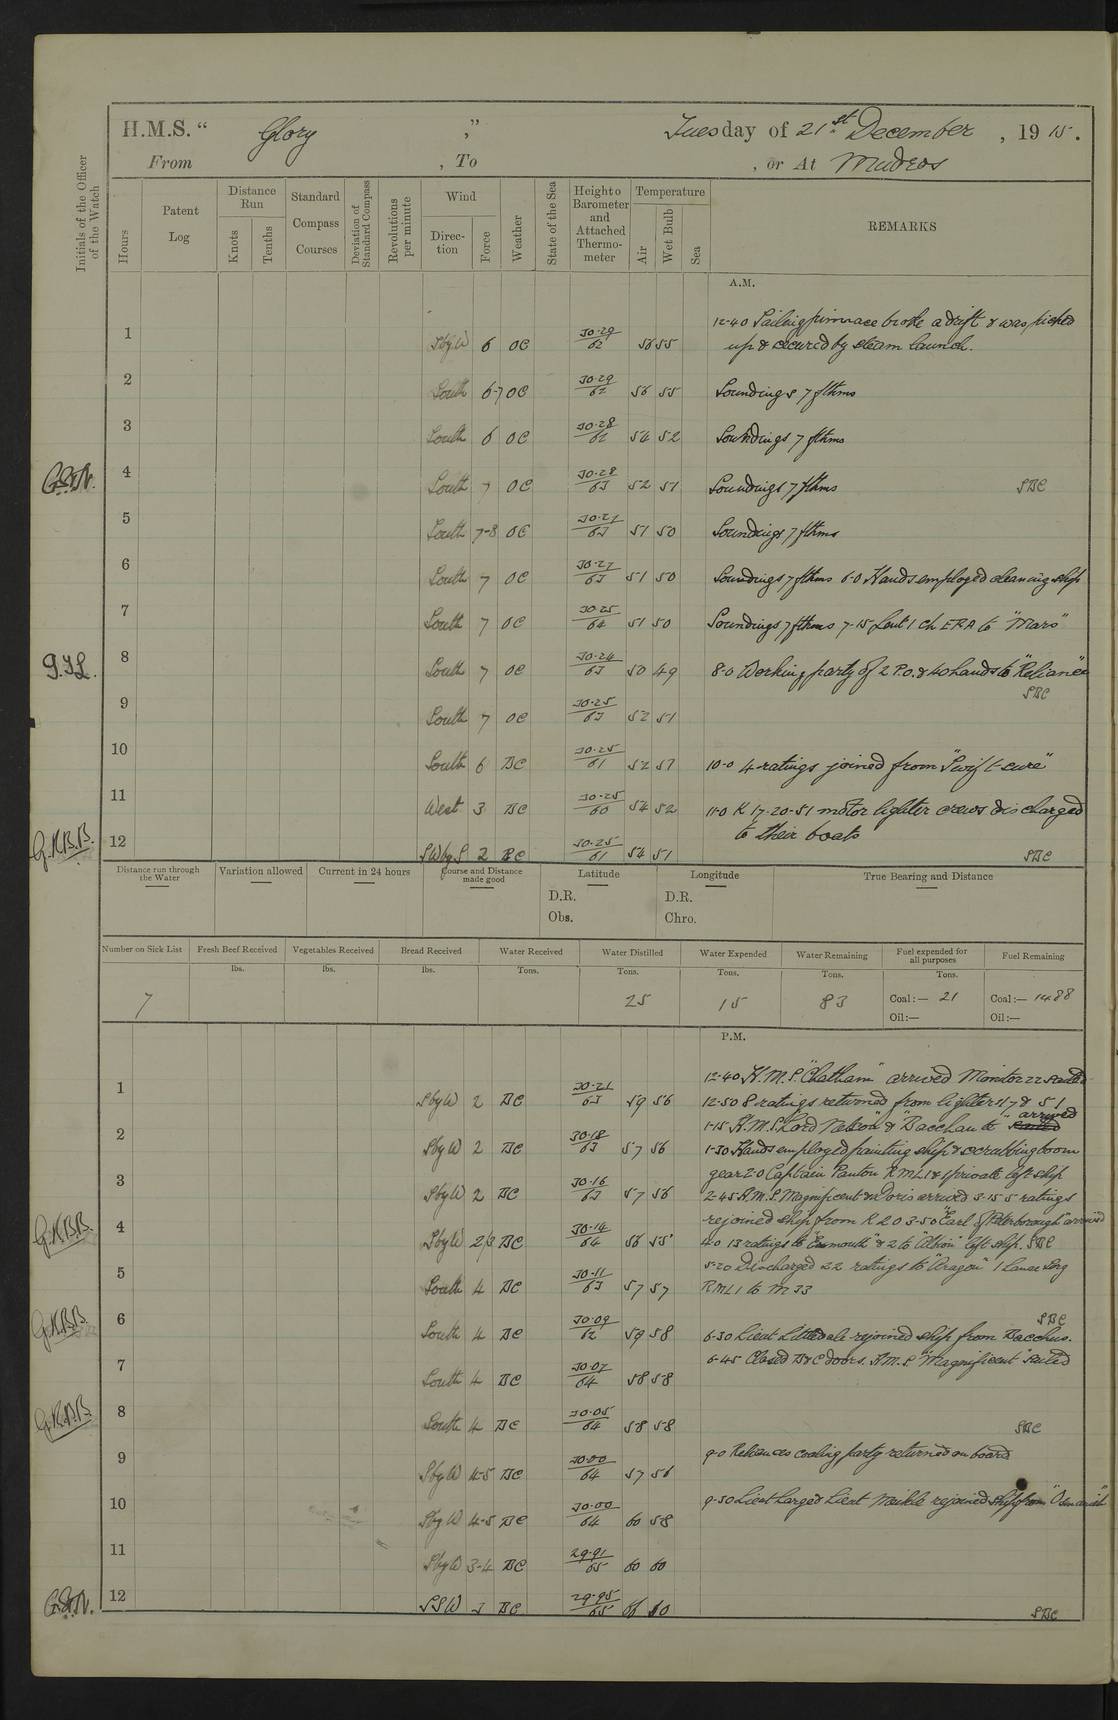 H.M.S. " Glory ," Tuesday of 21st December, 1915.
From , To , or At Mudros
Initials of the Officer of the Watch
Hours
Patent Log
Distance Run
Knots
Tenths
Standard Compass Courses
Deviation of Standard Compass
Revolutions per minute
Wind
Direc-tion
Force
Weather
State of the Sea
Height o Barometer and Attached Thermo-meter
Temperature
Air
Wet Bulb
Sea
REMARKS
A.M.
12-40 Sailing pinnace broke adrift & was picked
1 SbyW 6 OC 30.29/62 56 55 up & secured by steam launch.
2 South 6-7 OC 30.29/62 56 55 Soundings 7 fthms
3 South 6 OC 30.28/62 54 52 Soundings 7 fthms
4 South 7 OC 30.28/63 52 51 Soundings 7 fthms SBC
5 South 7-8 OC 30.27/63 51 50 Soundings 7 fthms
6 South 7 OC 30.27/63 51 50 Soundings 7 fthms 6-0 Hands employed cleaning ship
7 South 7 OC 30.25/64 51 50 Soundings 7 fthms 7-15 Sent 1 Ch ERA to "Mars"
8 South 7 OC 30.24/63 50 49 8-0 Working party of 2 P.O. & 40 hands to "Reliance"
SBC
9 South 7 OC 30.25/63 52 51
10 South 6 BC 30.25/61 52 51 10-0 4 ratings joined from "Swiftsure"
11 West 3 BC 30.25/60 54 52 11-0 K 17-20-51 motor lighter crews discharged
to their boats
G.K.B.B. 12 SWbyS 2 BC 30.25/61 54 51 SBC
Distance run through the Water
Variation allowed
Current in 24 hours
Course and Distance made good
Latitude
Longitude
True Bearing and Distance
D.R. D.R.
Obs. Chro.
Number on Sick List
Fresh Beef Received
Vegetables Received
Bread Received
Water Received
Water Distilled
Water Expended
Water Remaining
Fuel expended for all purposes
Fuel Remaining
lbs. lbs. lbs. Tons. Tons. Tons. Tons. Tons.
7 25 15 83 Coal:— 21 Coal:— 1488
Oil:— Oil:—
P.M.
12-40 H.M.S. "Chatham" arrived Monitor 22 sailed
1 SbyW 2 BC 30.21/63 59 56 12-50 8 ratings returned from lighters 17 & 51
1-15 H.M.S. Lord Nelson" & "Bacchante" arrived
2 SbyW 2 BC 30.18/63 57 56 1-30 Hands employed painting ship & scrubbing boom
gear 2-0 Captain Panton RMLI & 1 private left ship
3 SbyW 2 BC 30.16/63 57 56 2-45 H.M.S. Magnificent & Doris arrived 3-15 5 ratings
rejoined ship from K 20 3-50 "Earl of Peterborough" arrived
G.K.B.B. 4 SbyW 2/3 BC 30.14/64 56 55 4-0 13 ratings to "Exmouth" & 2 to "Albion" left ship. SBC
5-20 Discharged 22 ratings to "Aragon" 1 Lance Serg
5 South 4 BC 30.11/63 57 57 RMLI to M 33
SBC
G.K.B.B. 6 South 4 BC 30.09/62 59 58 6-30 Lieut Litttedale rejoined ship from Bacchus.
6-45 Closed B & C doors. H.M.S "Magnificent" sailed
7 South 4 BC 30.07/64 58 58
G.K.B.B. 8 South 4 BC 30.05/64 58 58 SBC
9-0 Reliances coaling party returned on board
9 SbyW 4-5 BC 30.00/64 57 56
10 SbyW 4-5 BC 30.00/64 60 58 9-50 Lieut Large & Lieut Meikle rejoined ship from
11 SbyW 3-4 BC 29.91/65 60 60
12 SSW 3 BC 29.95/65 SBC